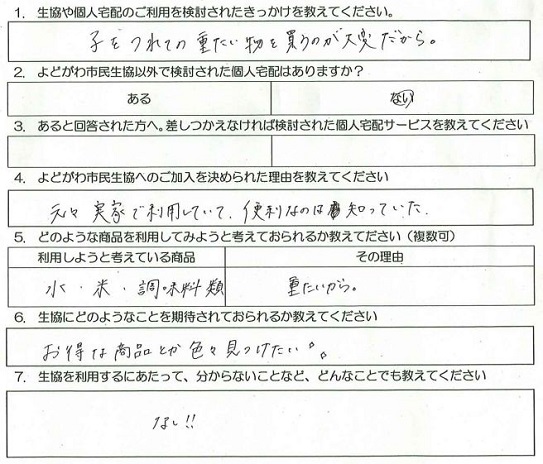 1. 生協や個人宅配のご利用を検討されたきっかけを教えてください。
子をつれての重たい物を買うのが大変だから。
2. よどがわ市民生協以外で検討された個人宅配はありますか？
ある ない
3. あると回答された方へ。差しつかえなければ検討された個人宅配サービスを教えてください
4. よどがわ市民生協へのご加入を決められた理由を教えてください
元々実家で利用していて、便利なのは知っていた。
5. どのような商品を利用してみようと考えておられるか教えてださい（複数可）
利用しようと考えている商品 その理由
水・米・調味料類 重たいから。
6. 生協にどのようなことを期待されておられるか教えてください
お得な商品とか色々見つけたい。
7. 生協を利用するにあたって、分からないことなど、どんなことでも教えてください
なし!!